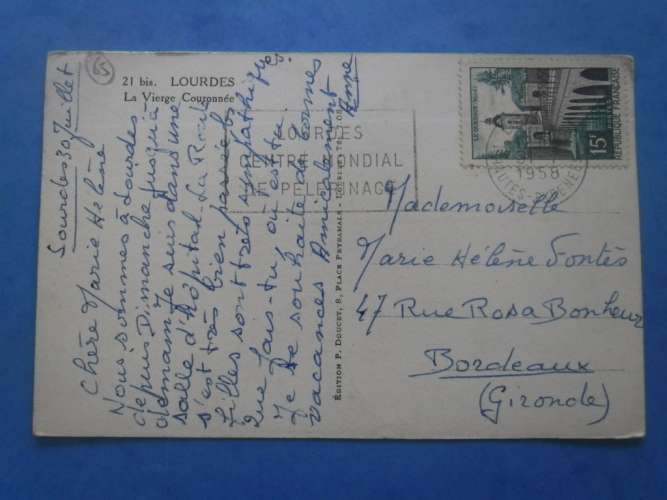 21 bis. LOURDES
La Vierge Couronnée
Lourdes 30 Juillet
Chère Marie Hélène
Nous sommes à Lourdes
depuis Dimanche jusqu'à
demain. Je suis dans une
salle d'Hôpital. La Route
s'est très bien passée. Les
filles sont très sympathiques.
Que fais-tu, où es-tu.
Je te souhaite de bonnes
vacances Amicalement
Anne
ÉDITION P. DOUCET, 8, PLACE PEYRAMALE - LOURDES
LOURDES
CENTRE MONDIAL
DE PELERINAGE
1958
HAUTES-PYRENEES
15F
REPUBLIQUE FRANÇAISE
Mademoiselle
Marie Hélène Fontès
47 Rue Rosa Bonheur
Bordeaux
(Gironde)